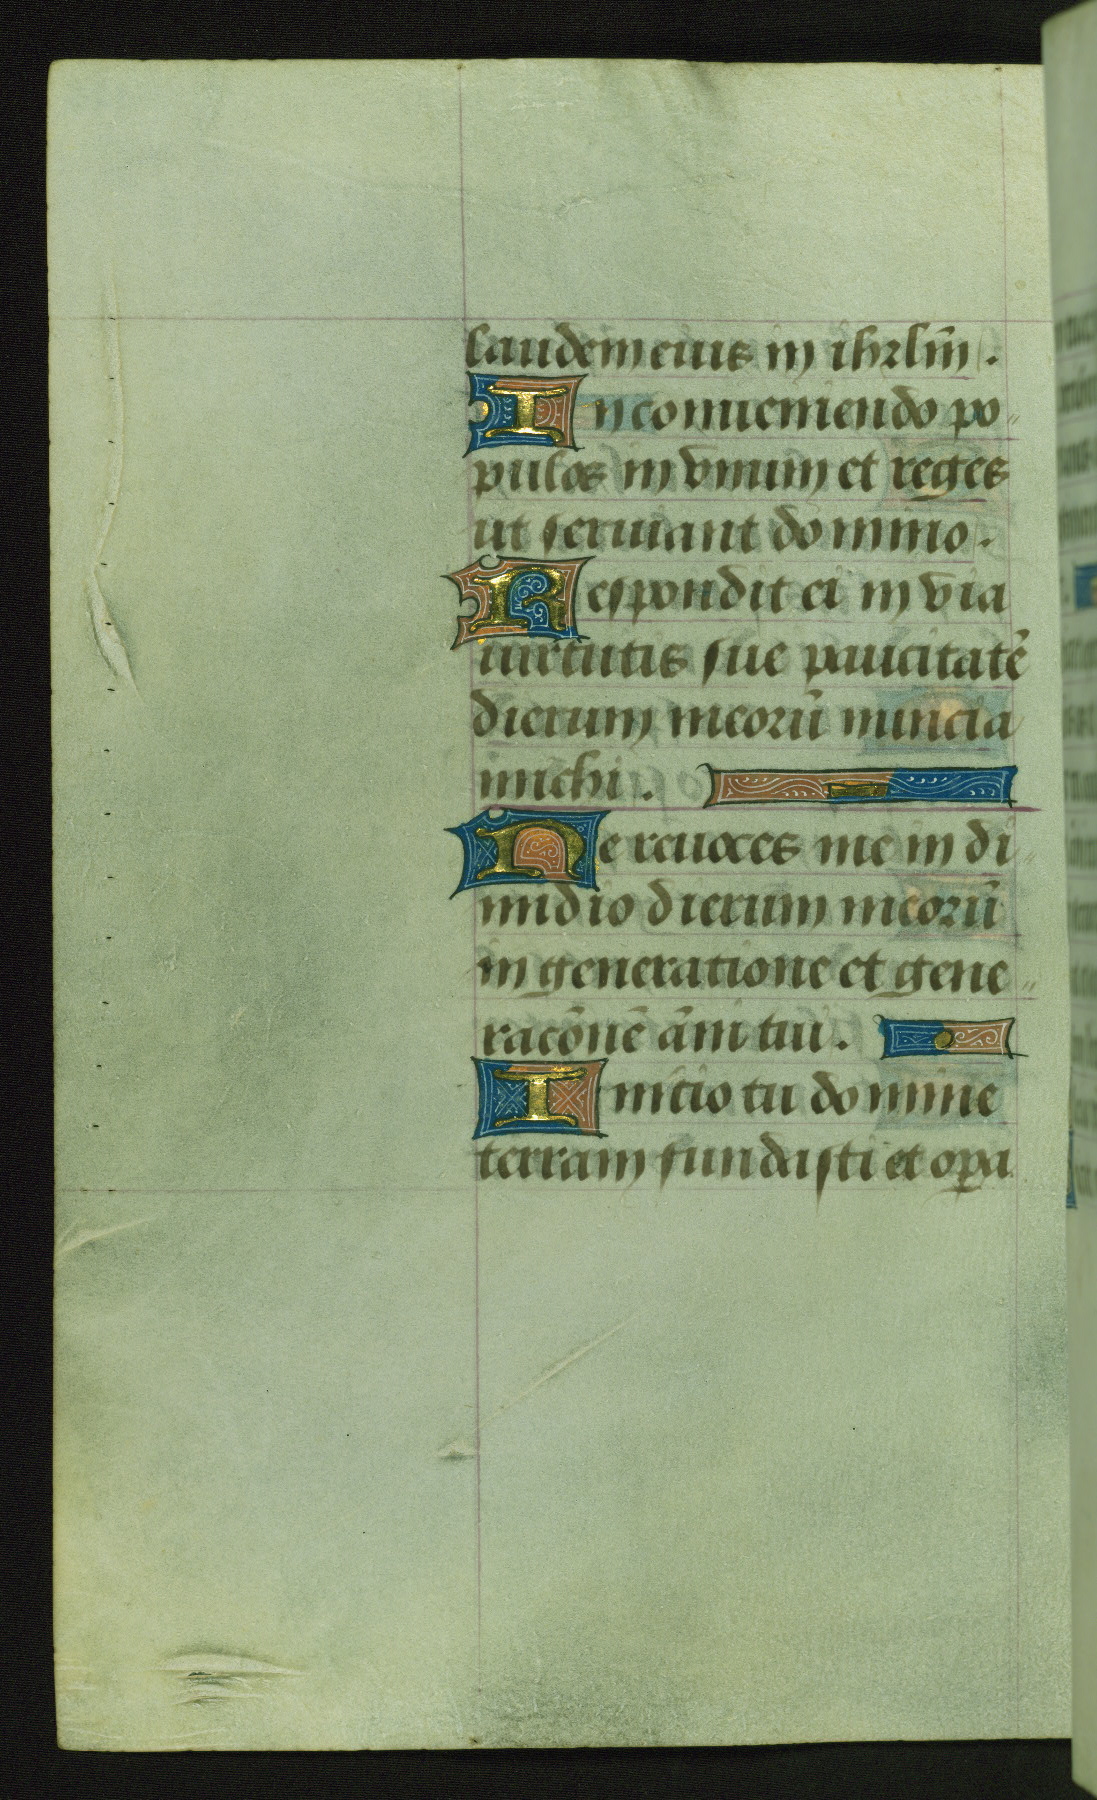 laudem eius in ihrlm̄.
In conueniendo po
pulos in vnum et reges
ut seruiant domino.
Respondit ei in via
uirtutis sue paucitatē
dierum meorū nuncia
michi.
Ne reuoces me in di
midio dierum meorū
in generatione et gene
racōnē āni tui.
Initio tu domine
terram fundasti et opa